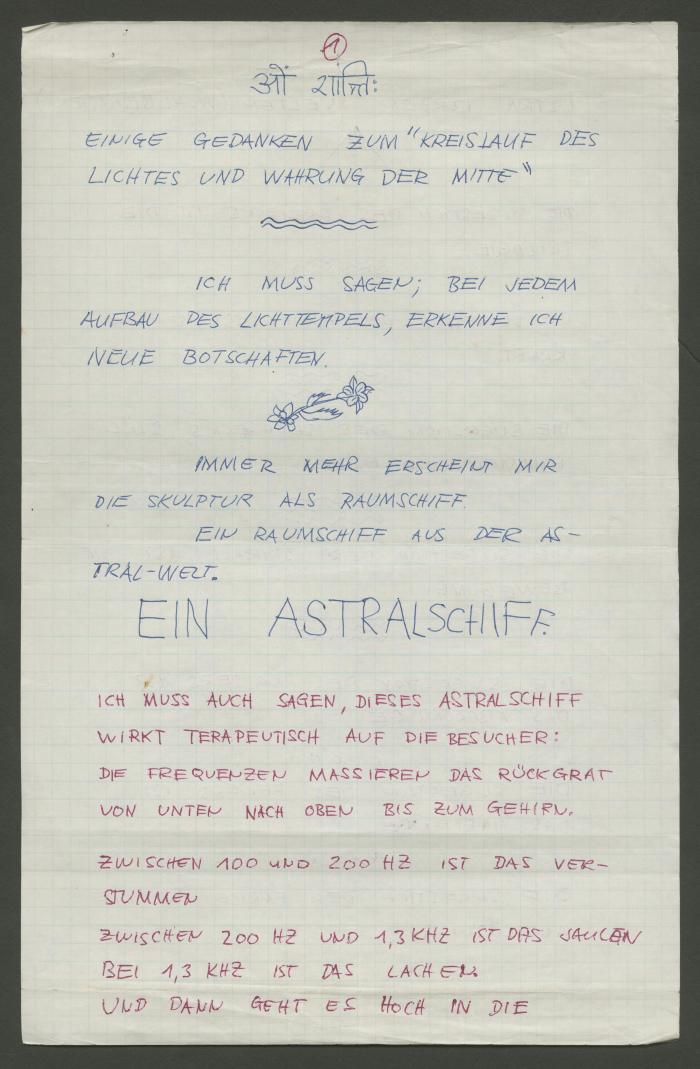 1
ओं शान्तिः
EINIGE GEDANKEN ZUM "KREISLAUF DES
LICHTES UND WAHRUNG DER MITTE"
ICH MUSS SAGEN; BEI JEDEM
AUFBAU DES LICHTTEMPELS, ERKENNE ICH
NEUE BOTSCHAFTEN.
IMMER MEHR ERSCHEINT MIR
DIE SKULPTUR ALS RAUMSCHIFF.
EIN RAUMSCHIFF AUS DER AS-
TRAL-WELT.
EIN ASTRALSCHIFF.
ICH MUSS AUCH SAGEN, DIESES ASTRALSCHIFF
WIRKT TERAPEUTISCH AUF DIE BESUCHER:
DIE FREQUENZEN MASSIEREN DAS RÜCKGRAT
VON UNTEN NACH OBEN BIS ZUM GEHIRN.
ZWISCHEN 100 UND 200 HZ IST DAS VER-
STUMMEN
ZWISCHEN 200 HZ UND 1,3 KHZ IST DAS
BEI 1,3 KHZ IST DAS LACHEN.
UND DANN GEHT ES HOCH IN DIE